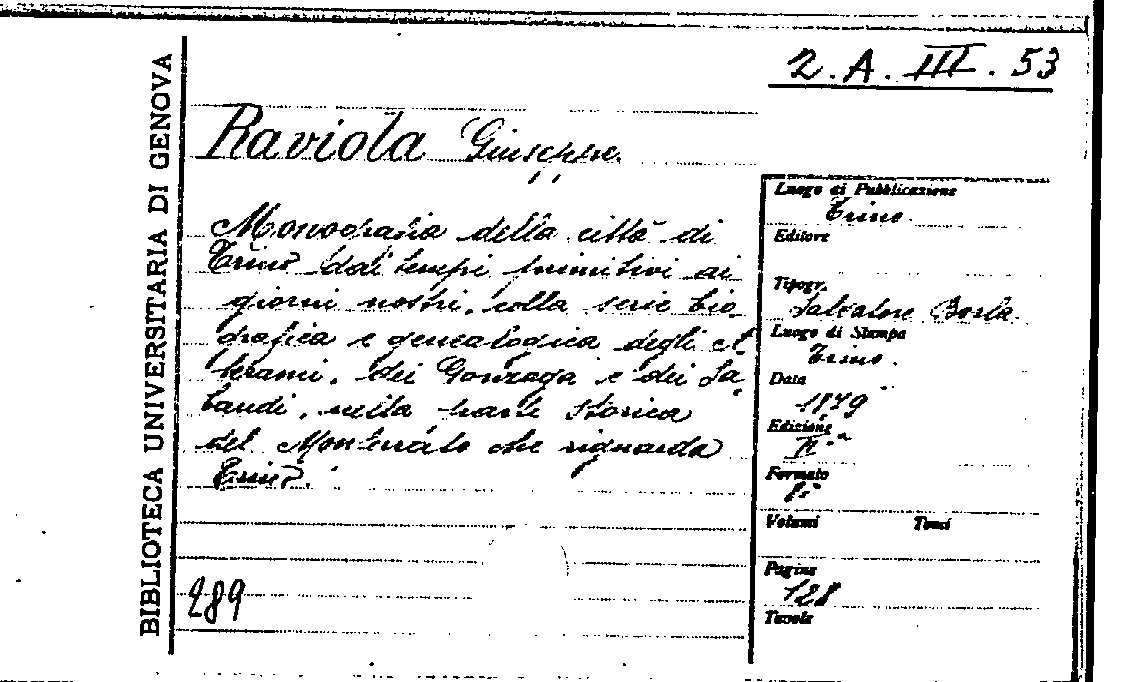 2. A. III. 53
BIBLIOTECA UNIVERSITARIA DI GENOVA
Raviola Giuseppe
Monografia della città di
Trino dai tempi primitivi ai
giorni nostri, colla serie bio-
grafica e genealogica degli A-
lerami, dei Gonzaga e dei Sa-
baudi, nella parte storica
del Monferrato che riguarda
Trino.
289
Luogo di Pubblicazione
Trino.
Editore
Tipogr.
Salvatore Borla
Luogo di Stampa
Trino.
Data
1879
Edizione
IIª
Formato
8º
Volumi Tomi
Pagine
128
Tavole